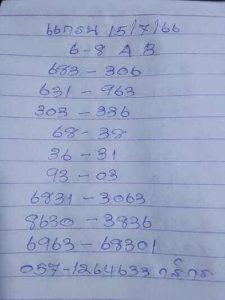 15/7/66
6-8 A B
683 - 306
631 - 963
303 - 336
68 - 38
36 - 31
93 - 03
6831 - 3063
8630 - 3836
6963 - 68301
057-1264633